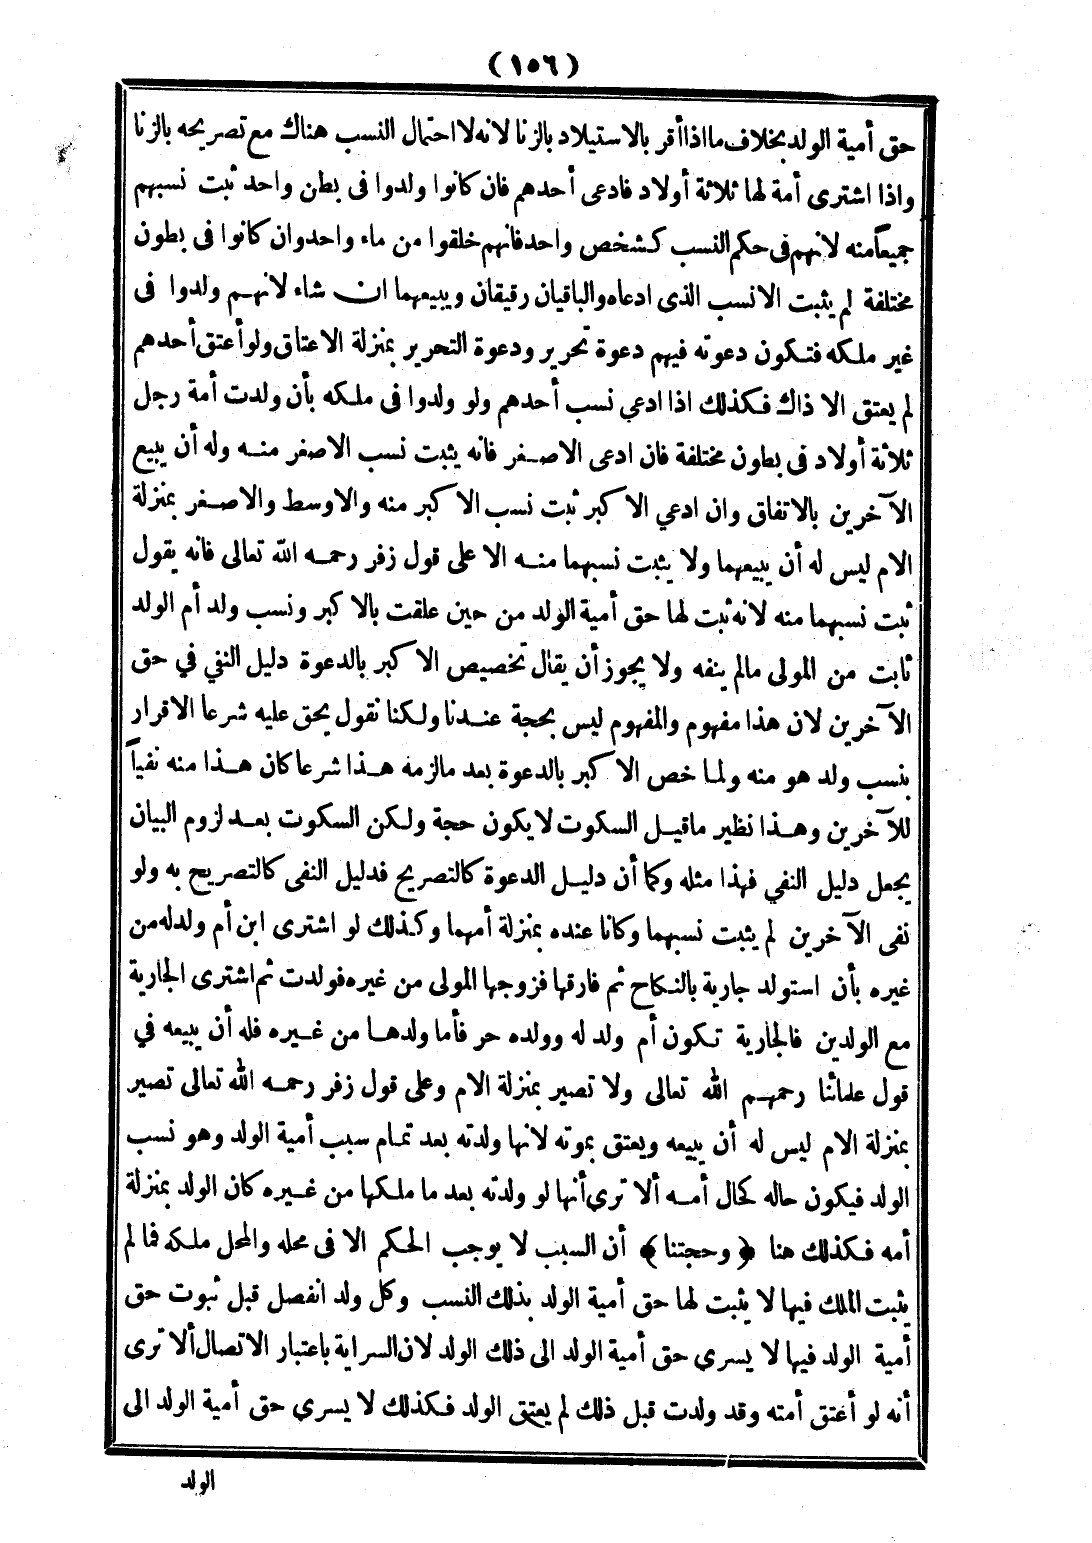 (١٥٦)
حق أمية الولد بخلاف ما اذا أقر بالاستيلاد بالزنا لانه لا احتمال النسب هناك مع تصريحه بالزنا
واذا اشترى أمة لها ثلاثة أولاد فادعى أحدهم فان كانوا ولدوا فى بطن واحد ثبت نسبهم
جميعاً منه لانهم فى حكم النسب كشخص واحد فانهم خلقوا من ماء واحد وان كانوا فى بطون
مختلفة لم يثبت الا نسب الذى ادعاه والباقيان رقيقان ويبيعهما ان شاء لانهم ولدوا فى
غير ملكه فتكون دعوته فيهم دعوة تحرير ودعوة التحرير بمنزلة الاعتاق ولو أعتق أحدهم
لم يعتق الا ذاك فكذلك اذا ادعي نسب أحدهم ولو ولدوا فى ملكه بأن ولدت أمة رجل
ثلاثة أولاد فى بطون مختلفة فان ادعى الاصغر فانه يثبت نسب الاصغر منه وله أن يبيع
الآخرين بالاتفاق وان ادعي الاكبر ثبت نسب الاكبر منه والاوسط والاصغر بمنزلة
الام ليس له أن يبيعهما ولا يثبت نسبهما منه الا على قول زفر رحمه الله تعالى فانه يقول
ثبت نسبهما منه لانه ثبت لها حق أمية الولد من حين علقت بالاكبر ونسب ولد أم الولد
ثابت من المولى مالم ينفه ولا يجوز أن يقال تخصيص الاكبر بالدعوة دليل النفي في حق
الآخرين لان هذا مفهوم والمفهوم ليس بحجة عندنا ولكنا نقول يحق عليه شرعا الاقرار
بنسب ولد هو منه ولما خص الاكبر بالدعوة بعد مالزمه هذا شرعا كان هذا منه نفياً
للآخرين وهذا نظير ماقيل السكوت لا يكون حجة ولكن السكوت بعد لزوم البيان
يجعل دليل النفي فهذا مثله وكما أن دليل الدعوة كالتصريح فدليل النفى كالتصريح به ولو
نفى الآخرين لم يثبت نسبهما وكانا عنده بمنزلة أمهما وكذلك لو اشترى ابن أم ولد له من
غيره بأن استولد جارية بالنكاح ثم فارقها فزوجها المولى من غيره فولدت ثم اشترى الجارية
مع الولدين فالجارية تكون أم ولد له وولده حر فأما ولدها من غيره فله أن يبيعه في
قول علمائنا رحمهم الله تعالى ولا تصير بمنزلة الام وعلى قول زفر رحمه الله تعالى تصير
بمنزلة الام ليس له أن يبيعه ويعتق بموته لانها ولدته بعد تمام سبب أمية الولد وهو نسب
الولد فيكون حاله كحال أمه ألا تري أنها لو ولدته بعد ما ملكها من غيره كان الولد بمنزلة
أمه فكذلك هنا ﴿وحجتنا﴾ أن السبب لا يوجب الحكم الا فى محله والمحل ملكه فما لم
يثبت الملك فيها لا يثبت لها حق أمية الولد بذلك النسب وكل ولد انفصل قبل ثبوت حق
أمية الولد فيها لا يسري حق أمية الولد الى ذلك الولد لان السراية باعتبار الاتصال ألا ترى
أنه لو أعتق أمته وقد ولدت قبل ذلك لم يعتق الولد فكذلك لا يسري حق أمية الولد الى
الولد